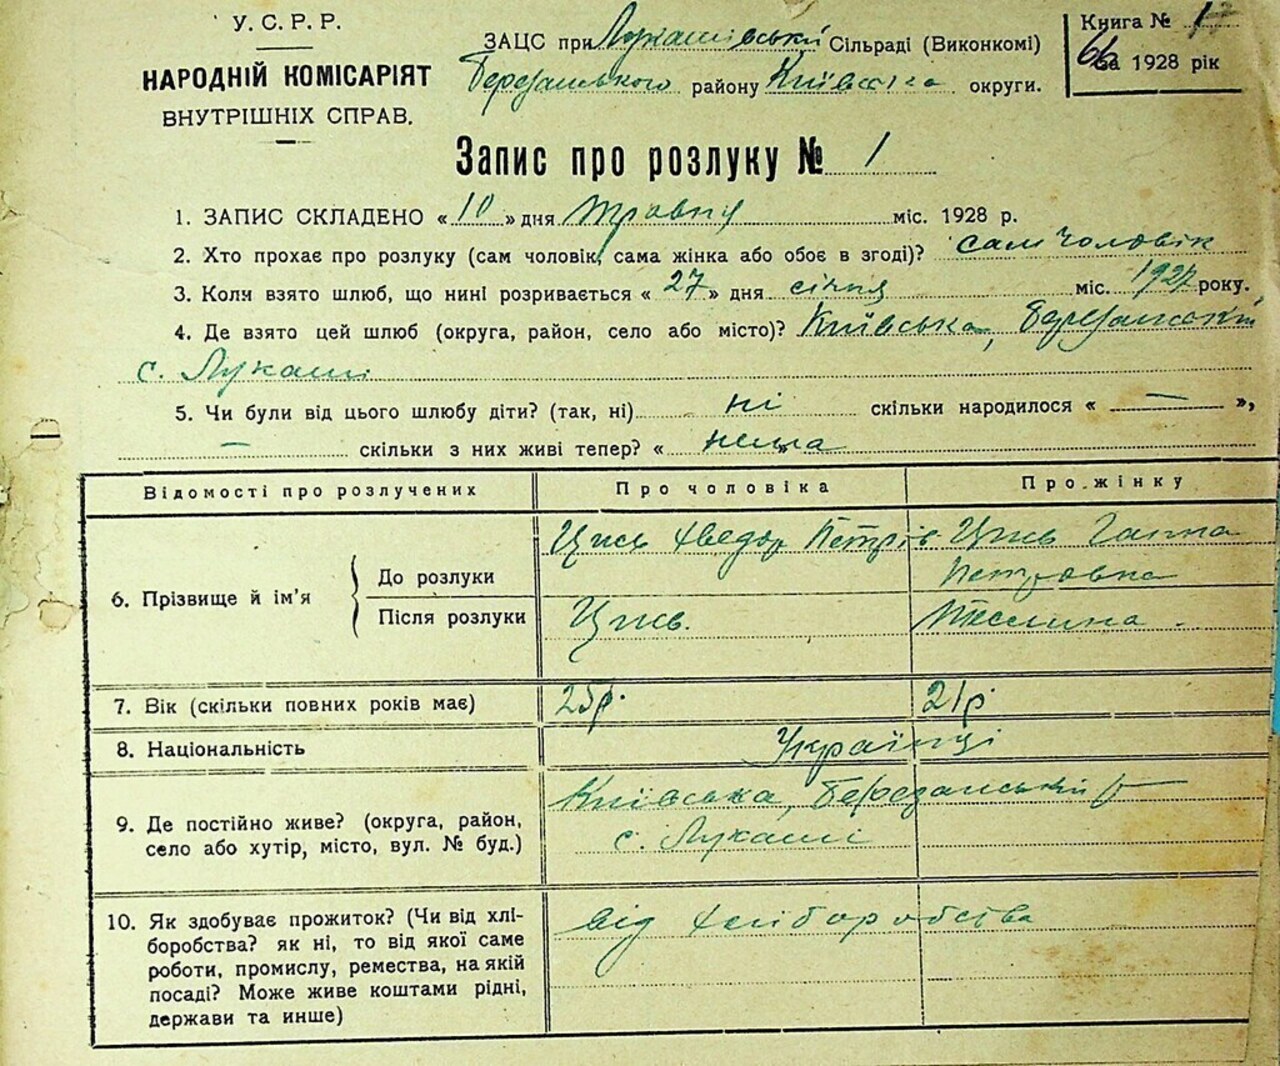 У. С. Р. Р.
НАРОДНІЙ КОМІСАРІЯТ
ВНУТРІШНІХ СПРАВ.
ЗАЦС при Лукашівській Сільраді (Виконкомі)
Березанського району Київська округи.
Книга № 1
66
за 1928 рік
Запис про розлуку № 1
1. ЗАПИС СКЛАДЕНО « 10 » дня травня міс. 1928 р.
2. Хто прохає про розлуку (сам чоловік, сама жінка або обоє в згоді)? сам чоловік
3. Коли взято шлюб, що нині розривається « 27 » дня січня міс. 1927 року.
4. Де взято цей шлюб (округа, район, село або місто)? Київська, Березанський
с. Лукаші
5. Чи були від цього шлюбу діти? (так, ні) ні скільки народилося « — »,
— скільки з них живі тепер? « нема
Відомості про розлучених Про чоловіка Про жінку
6. Прізвище й ім'я
До розлуки Цись Хведор Петрів Цись Ганна
Петровна
Після розлуки Цись. Теслина.
7. Вік (скільки повних років має) 25р. 21р
8. Національність Українці
9. Де постійно живе? (округа, район, село або хутір, місто, вул. № буд.)
Київська, Березанський р
с. Лукаші
10. Як здобуває прожиток? (Чи від хлі-
боробства? як ні, то від якої саме
роботи, промислу, ремества, на якій
посаді? Може живе коштами рідні,
держави та инше)
від хліборобства